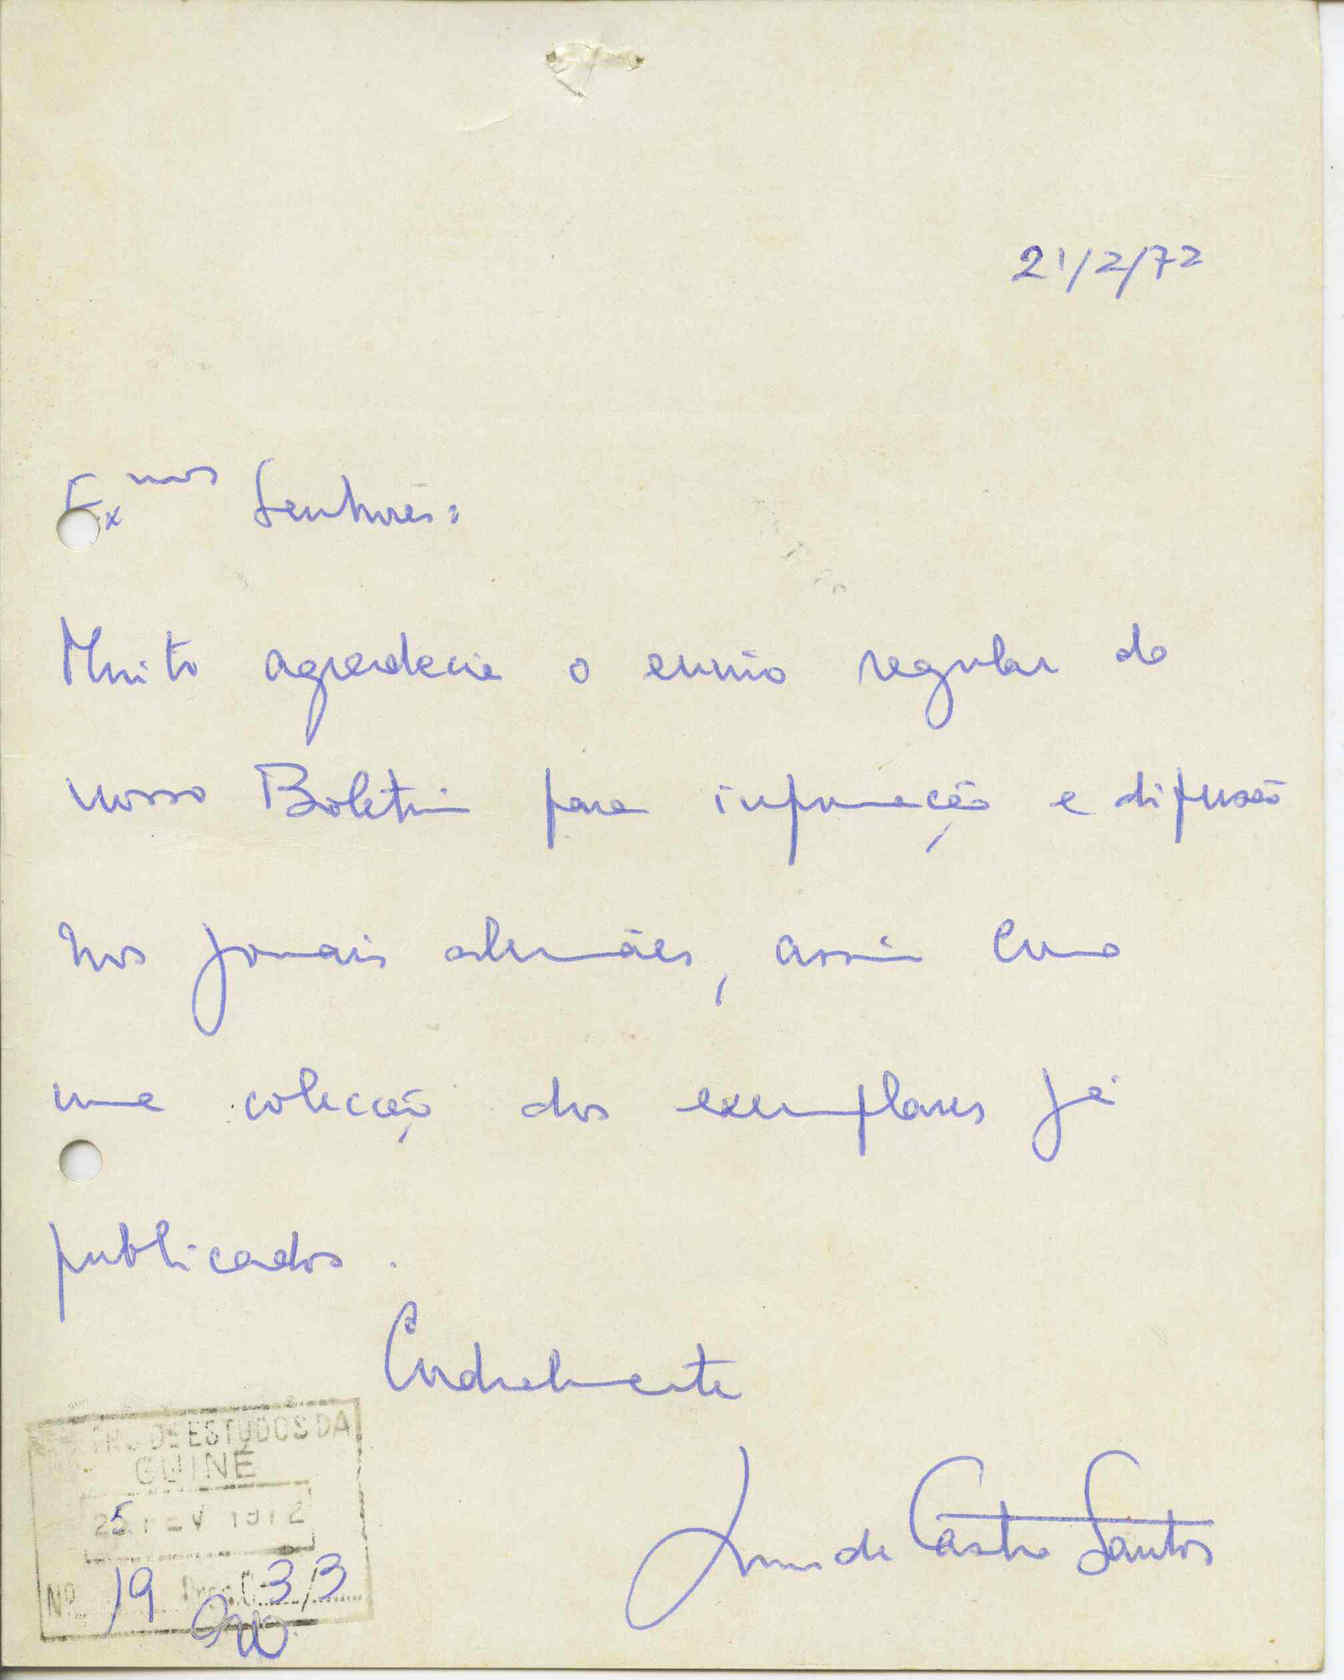 21/2/72
Exmos Senhores:
Muito agradecia o envio regular do
vosso Boletim para informação e difusão
nos jornais alemães, assim como
uma colecção dos exemplares já
publicados.
Cordialmente
de Castro Santos
CENTRO DE ESTUDOS DA
GUINÉ
25 FEV 1972
Nº 19 Proc. C-3/3